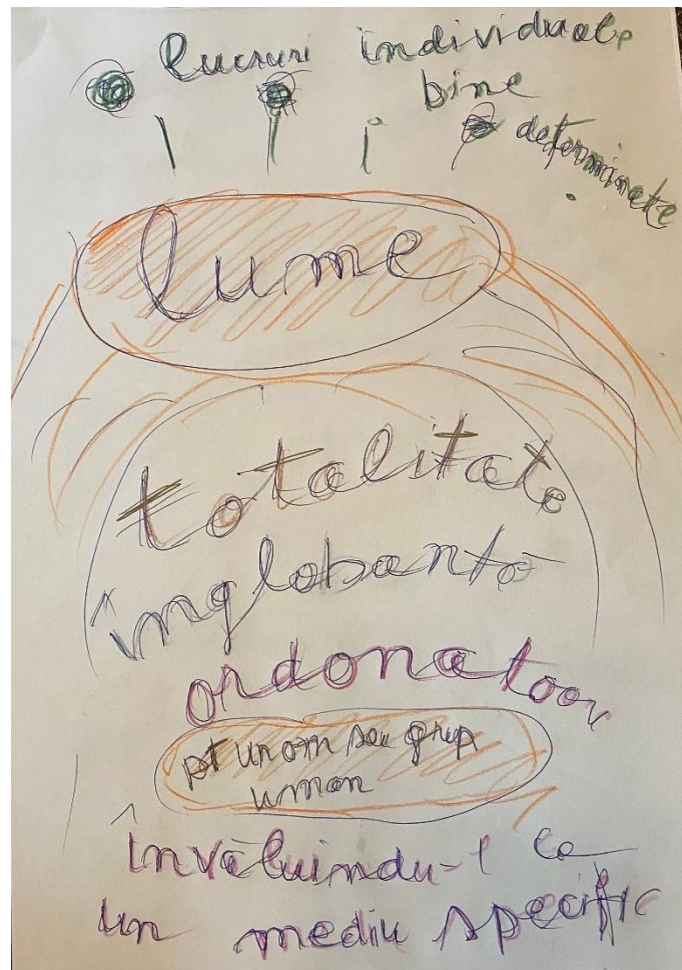 lucruri individuale
bine
determinate
lume
totalitate
înglobantă
ordonatoare
pt un om sau grup
uman
învăluindu-l ca
un mediu specific